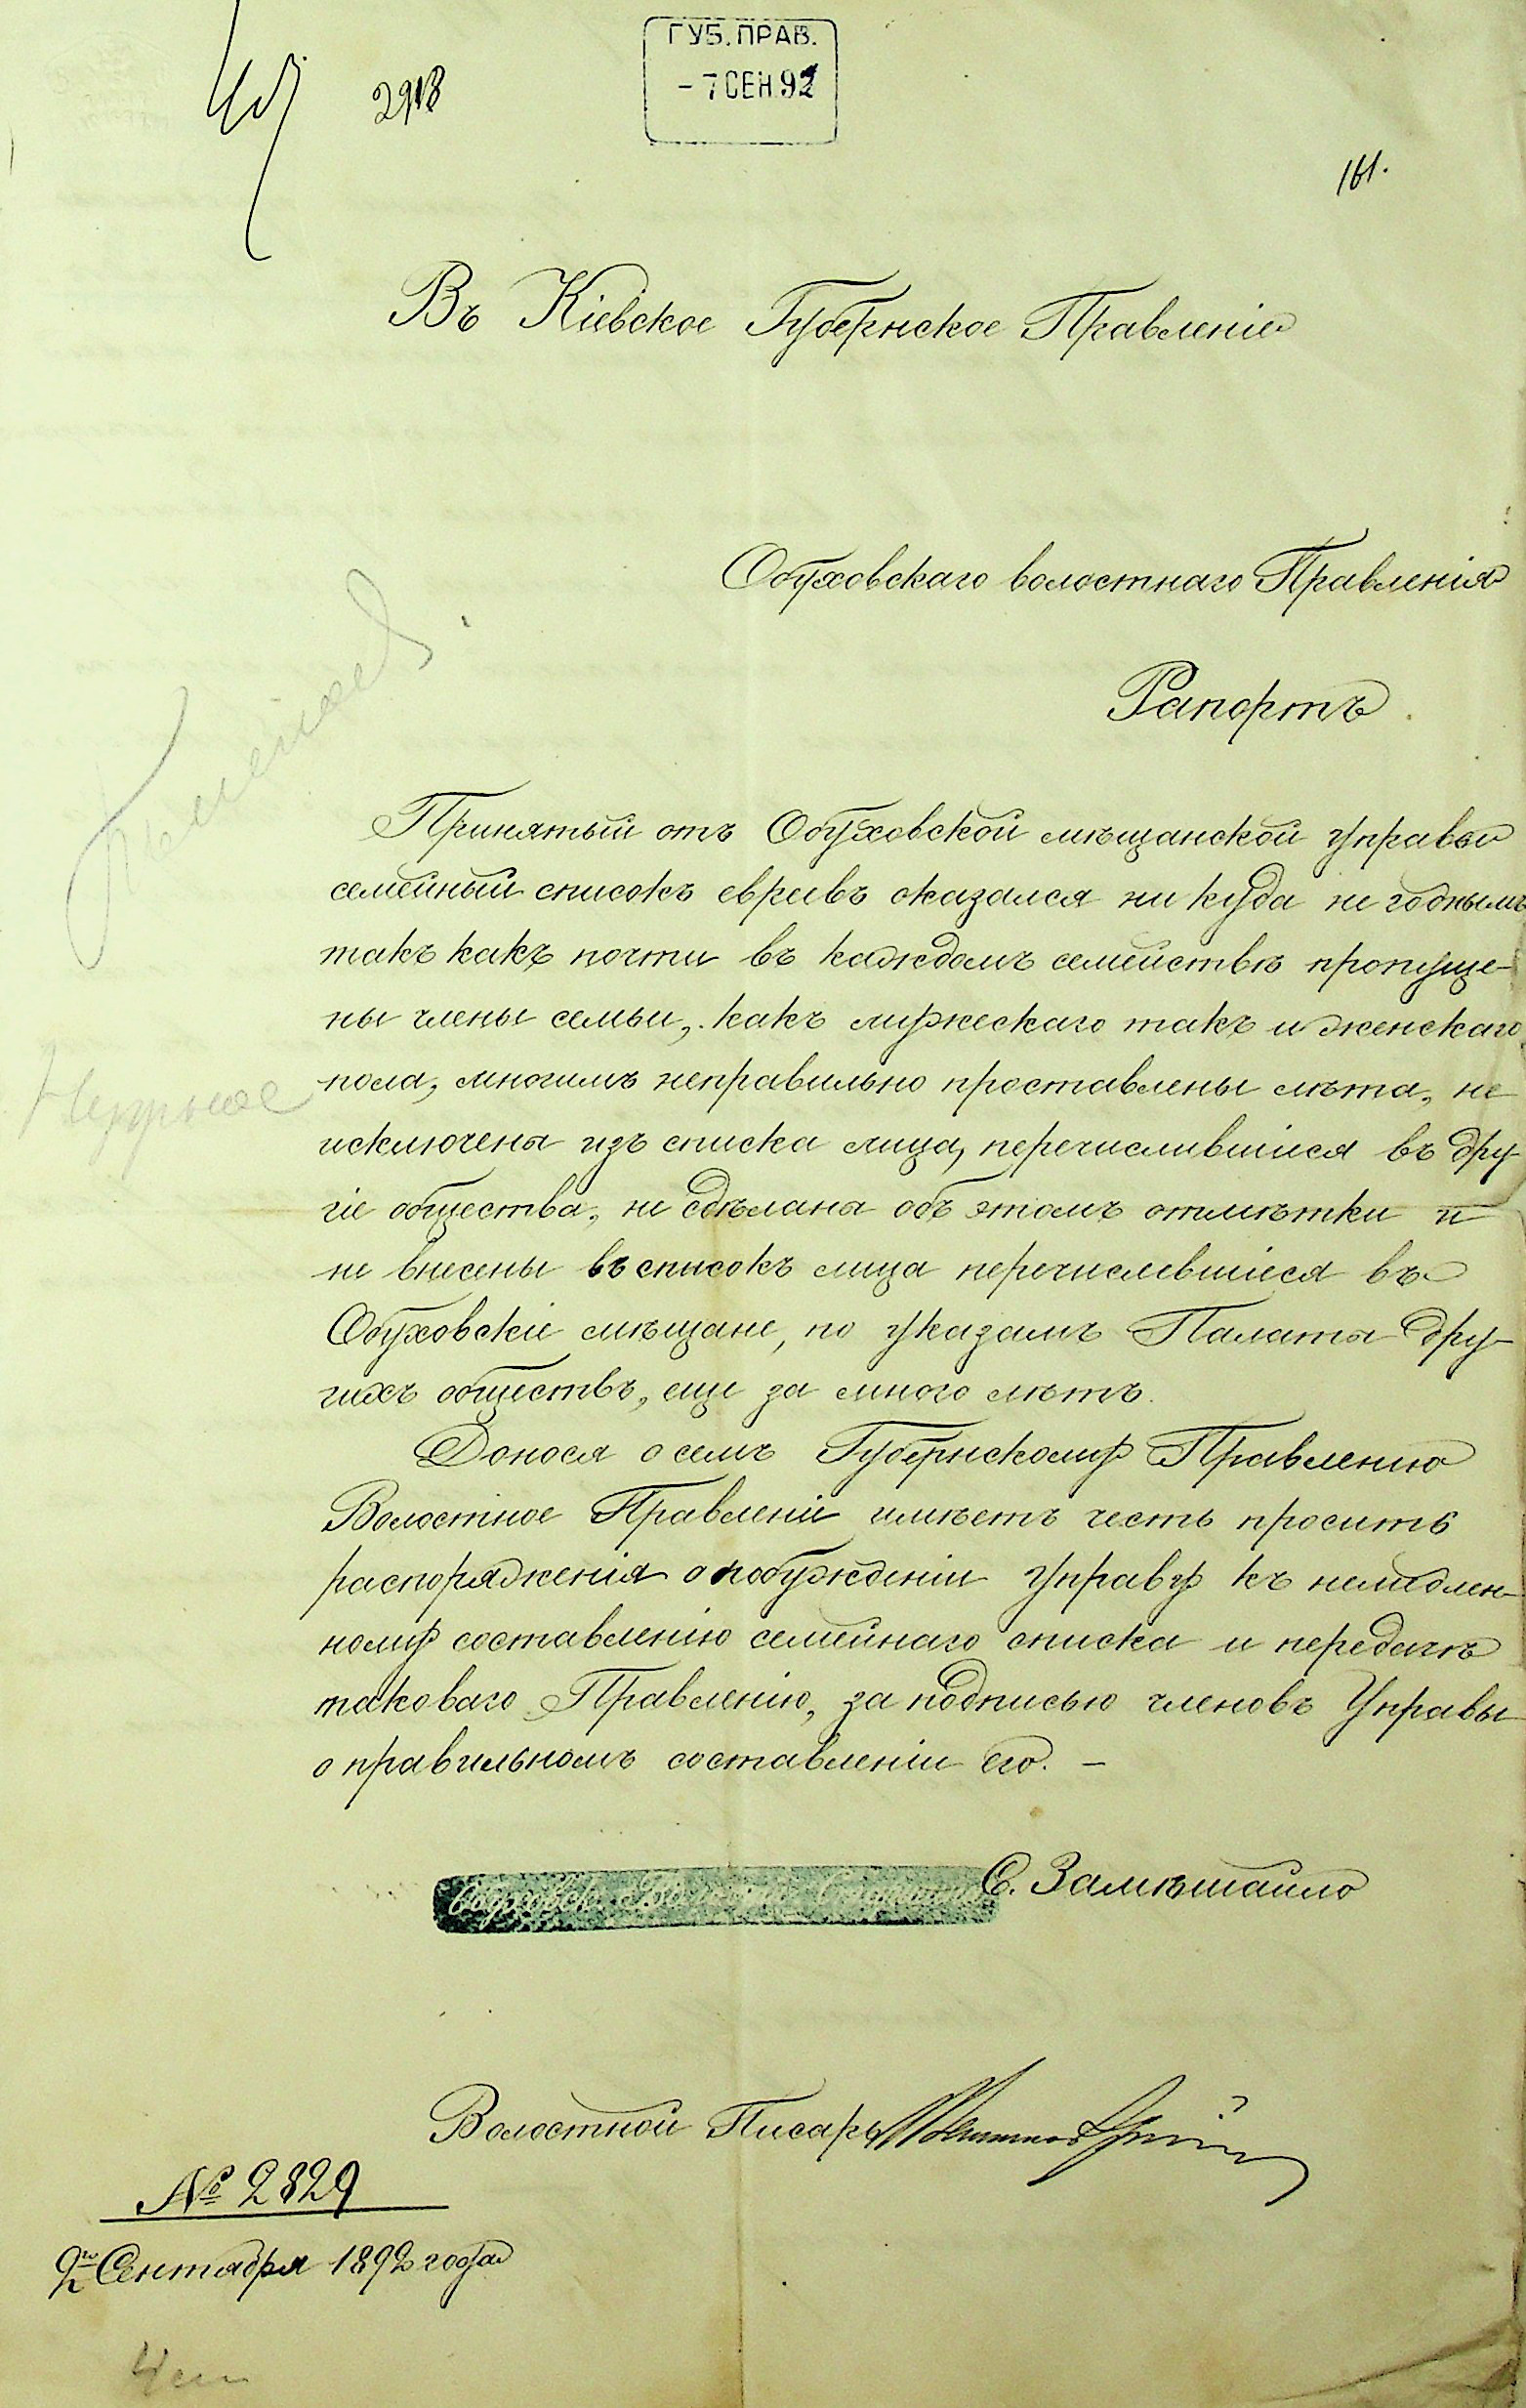 ГУБ. ПРАВ.
- 7 СЕН. 92
2918
161.
Въ Кіевское Губернское Правленіе
Обуховскаго волостнаго Правленія
Рапортъ.
Принятый отъ Обуховской мѣщанской Управы
семейный списокъ евреевъ оказался ни куда не годнымъ
такъ какъ почти въ каждомъ семействѣ пропуще-
ны члены семьи, какъ мужескаго такъ и женскаго
пола, многимъ неправильно проставлены лѣта, не
исключены изъ списка лица, перечислившіися въ дру-
гіе общества, не сдѣланы объ этомъ отмѣтки и
не внесены въ списокъ лица перечислевшіеся въ
Обуховскіе мѣщане, по указамъ Палаты дру-
гихъ обществъ, еще за много лѣтъ.
Донося о семъ Губернскому Правленію
Волостное Правленіе имѣетъ честь просить
распоряженія о побужденіи Управу къ немедлен-
ному составленію семейнаго списка и передачѣ
таковаго Правленію, за подписью членовъ Управы
о правильномъ составленіи его. -
С. Замѣшайло
Волостной Писарь
№ 2829
2го Сентября 1892 года